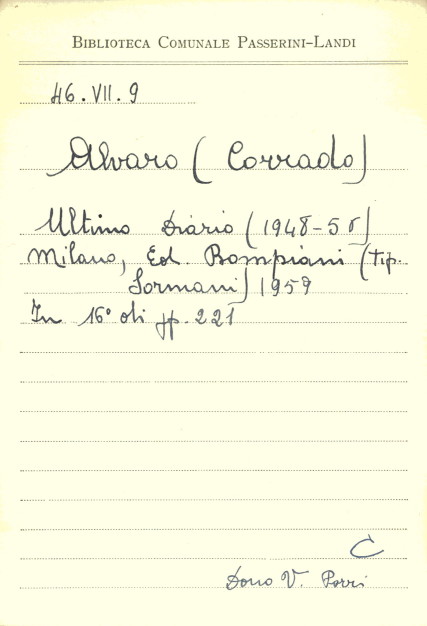 BIBLIOTECA COMUNALE PASSERINI-LANDI
46.VII.9
Alvaro (Corrado)
Ultimo Diario (1948-56)
Milano, Ed. Bompiani (tip.
Sormani) 1959
In 16° di pp. 221
C
Dono V.